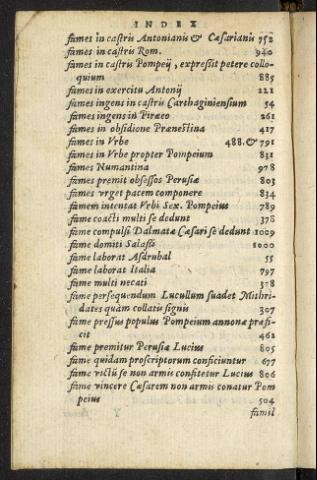 INDEX
fames in castris Antonianis & Cæsarianis 752
fames in castris Rom. 940
fames in castris Pompeij, expressit petere collo-
quium 885
fames in exercitu Antonij 221
fames ingens in castris Carthaginiensium 54
fames ingens in Piræo 261
fames in obsidione Prænestina 417
fames in Vrbe 488. & 791
fames in Vrbe propter Pompeium 831
fames Numantina 978
fames premit obsessos Perusiæ 803
fames vrget pacem componere 834
famem intentat Vrbi Sex. Pompeius 789
fame coacti multi se dedunt 378
fame compulsi Dalmatæ Cæsari se dedunt 1029
fame domiti Salassi 1000
fame laborat Asdrubal 55
fame laborat Italia 797
fame multi necati 378
fame persequendum Lucullum suadet Mithri-
dates quàm collatis signis 307
fame pressus populus Pompeium annonæ præfi-
cit 461
fame premitur Perusiæ Lucius 805
fame quidam proscriptorum conficiuntur 677
fame victũ se non armis confitetur Lucius 806
fame vincere Cæsarem non armis conatur Pom
peius 504
Y famil